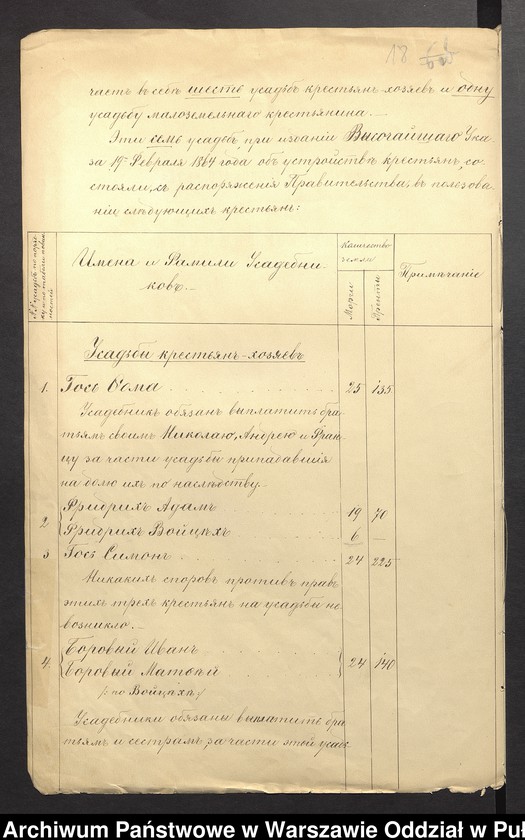 18
часть въ себѣ шесть усадьбъ крестьянъ-хозяевъ и одну
усадьбу малоземельнаго крестьянина.—
Эти семь усадьбъ, при изданіи Высочайшаго Ука-
за 19 Февраля 1864 года объ устройствѣ крестьянъ, со-
стояли, съ распоряженія Правительства, въ пользова-
ніи слѣдующихъ крестьянъ:
Имена и Фамиліи Усадебни-
ковъ.—
Количество
земли
Морги
Пренты
Примѣчаніе
Усадьбы крестьянъ-хозяевъ
1. Гось Ѳома 25 135
Усадебникъ обязанъ выплатить бра-
тьямъ своимъ Николаю, Андрею и Фран-
цу за части усадьбы припадавшія
на долю ихъ по наслѣдству.—
Фридрихъ Адамъ 19 70
2 Фридрихъ Войцѣхъ 6 —
3 Гось Симонъ 24 225
Никакихъ споровъ противъ правъ
этихъ трехъ крестьянъ на усадьбы не
возникло.—
Боровый Иванъ
4. Боровый Матвѣй 24 140
по Войцѣхѣ
Усадебники обязаны выплатить бра-
тьямъ и сестрамъ, за части этой усадь-
Archiwum Państwowe w Warszawie Oddział w Puł